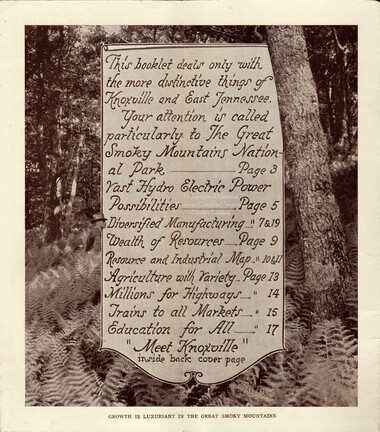 This booklet deals only with
the more distinctive things of
Knoxville and East Tennessee.
Your attention is called
particularly to The Great
Smoky Mountains Nation-
al Park Page 3
Vast Hydro Electric Power
Possibilities Page 5
Diversified Manufacturing " 7&19
Wealth of Resources Page 9
Resource and Industrial Map " 10&11
Agriculture with Variety Page 13
Millions for Highways " 14
Trains to all Markets " 15
Education for All " 17
"Meet Knoxville"
inside back cover page
GROWTH IS LUXURIANT IN THE GREAT SMOKY MOUNTAINS